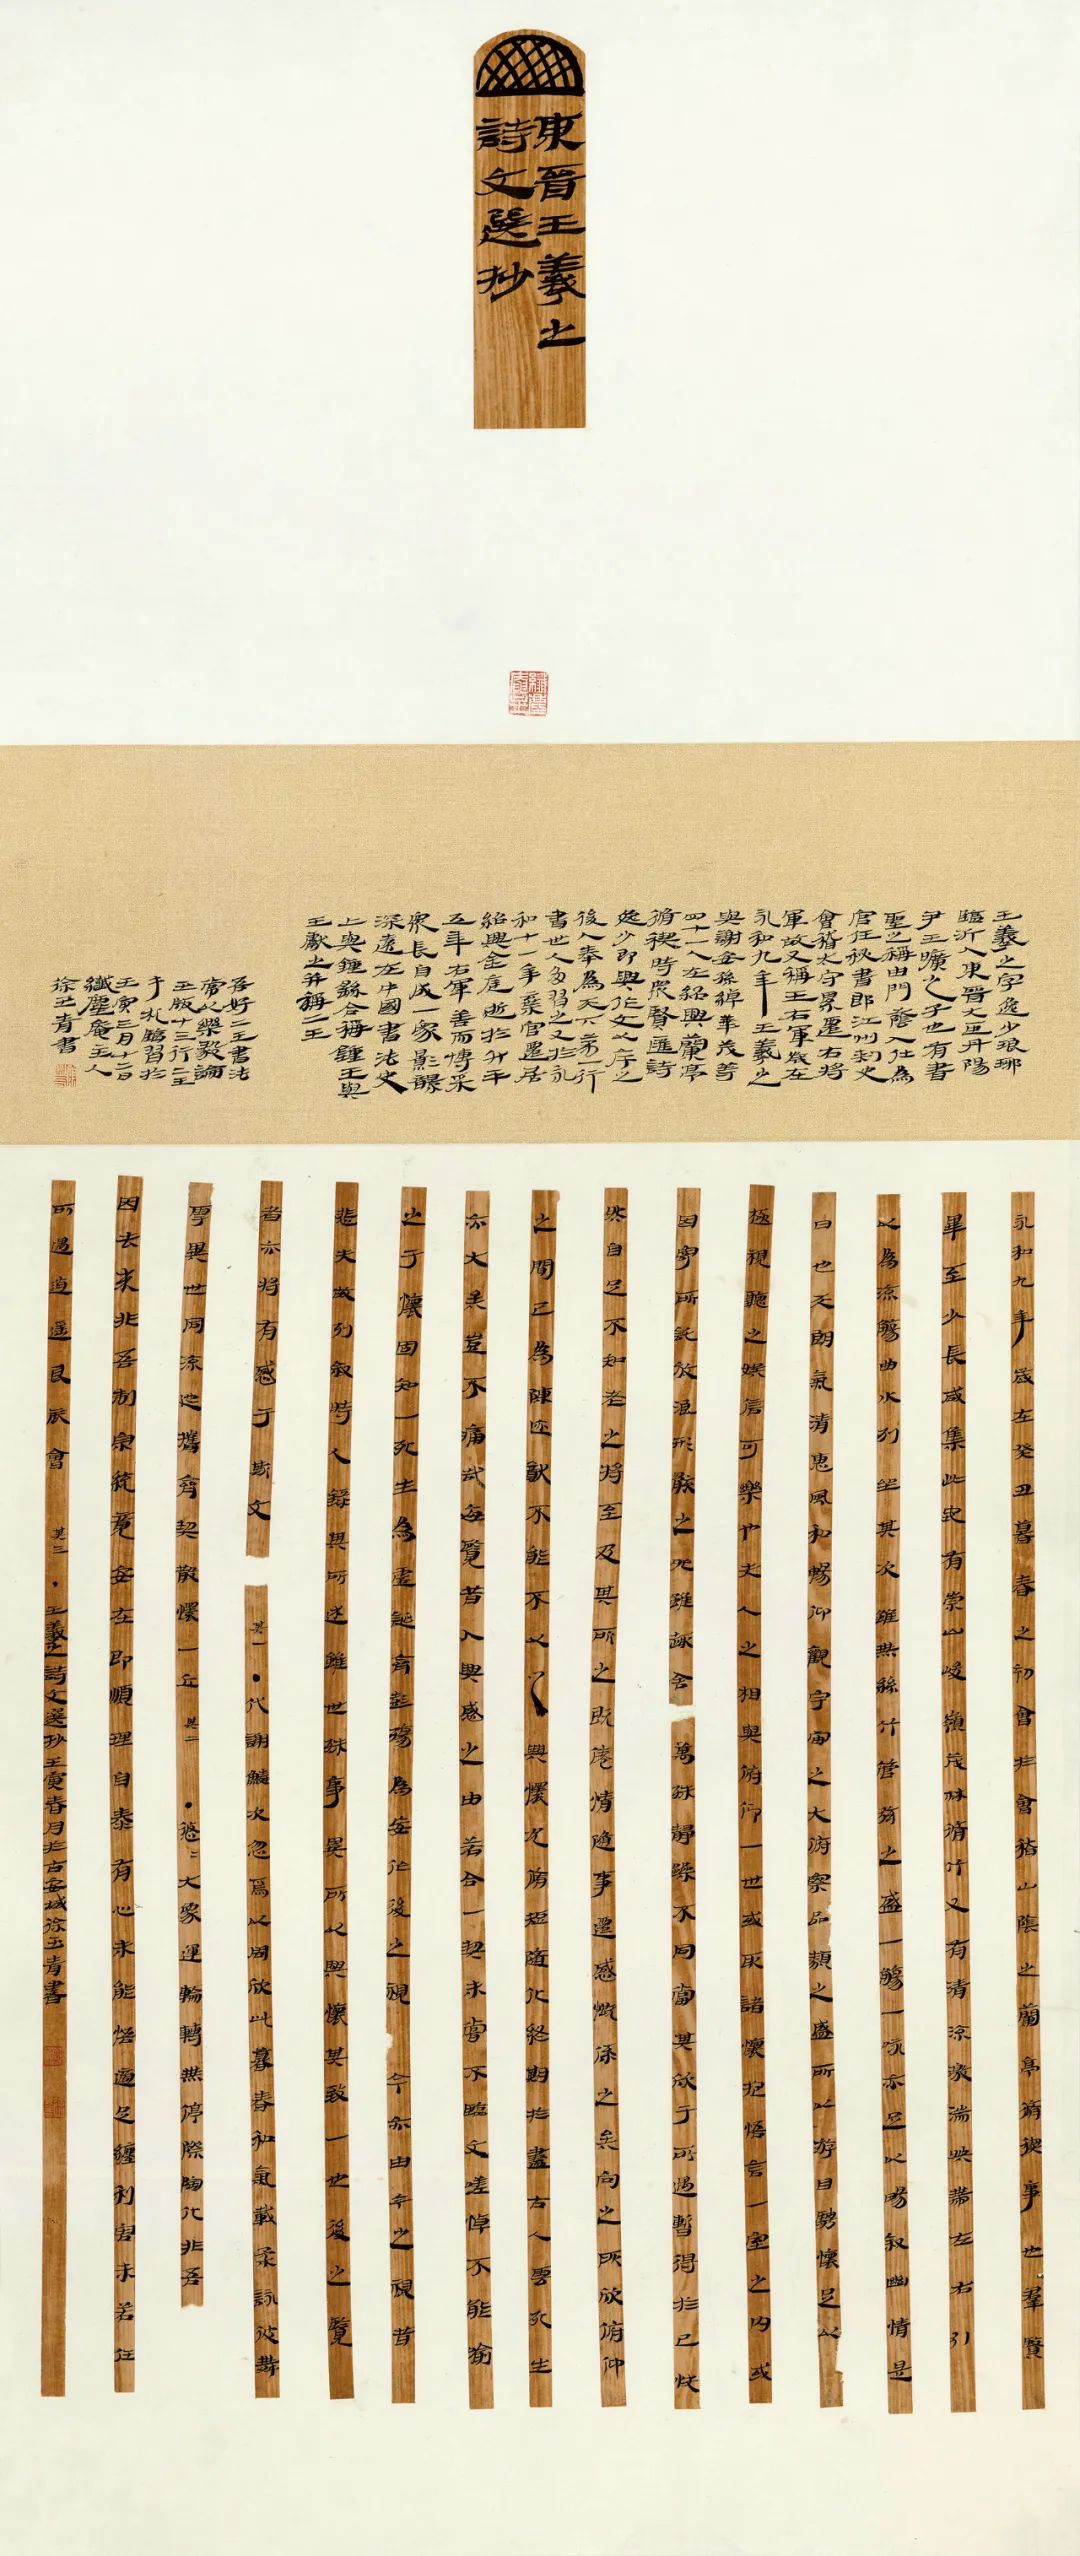 東晉王羲之
詩文選抄
王羲之字逸少琅琊
臨沂人東晉大臣丹陽
尹王曠之子也有書
聖之稱由門蔭入仕為
官任秘書郎江州刺史
會稽太守累遷右將
軍故又稱王右軍歲在
永和九年王羲之
與謝安孫綽華茂等
四十一人在紹興蘭亭
脩禊時眾賢匯詩
逸少即興作文以序之
後人奉為天下第行
書世人多習之又於永
和十一年棄官遷居
紹興金庭逝於升平
五年右軍善而博采
眾長自成一家影響
深遠在中國書法史
上與鍾繇合稱鍾王與
王獻之并稱二王
吾好二王書法
常以樂毅論
玉版十三行二王
手札臨習於
壬寅三月十二日
纖塵庵主人
徐玉青書
永和九年歲在癸丑暮春之初會於會稽山陰之蘭亭脩禊事也羣賢
畢至少長咸集此地有崇山峻嶺茂林脩竹又有清流激湍映帶左右引
以為流觴曲水列坐其次雖無絲竹管弦之盛一觴一詠亦足以暢敘幽情是
日也天朗氣清惠風和暢仰觀宇宙之大俯察品類之盛所以游目騁懷足以
極視聽之娛信可樂也夫人之相與俯仰一世或取諸懷抱悟言一室之內或
因寄所託放浪形骸之外雖趣舍萬殊靜躁不同當其欣于所遇暫得於己快
然自足不知老之將至及其所之既倦情隨事遷感慨係之矣向之所欣俯仰
之間已為陳迹猷不能不以之興懷況脩短隨化終期於盡古人雲死生
亦大矣豈不痛哉每覽昔人興感之由若合一契未嘗不臨文嗟悼不能喻
之于懷固知一死生為虛誕齊彭殤為妄作後之視今亦由今之視昔
悲夫故列敘時人錄其所述雖世殊事異所以興懷其致一也後之覽
者亦將有感于斯文 其一·代謝鱗次忽焉以周欣此暮春和氣載柔詠彼舞
雩異世同流迺攜齊契散懷一丘 其二·悠悠大象運輪轉無停際陶化非吾
因去來非吾制宗統竟安在即順理自泰有心未能悟適足纏利害未若任
所遇逍遙良辰會 其三·王羲之詩文選抄壬寅春月於古安城徐玉青書